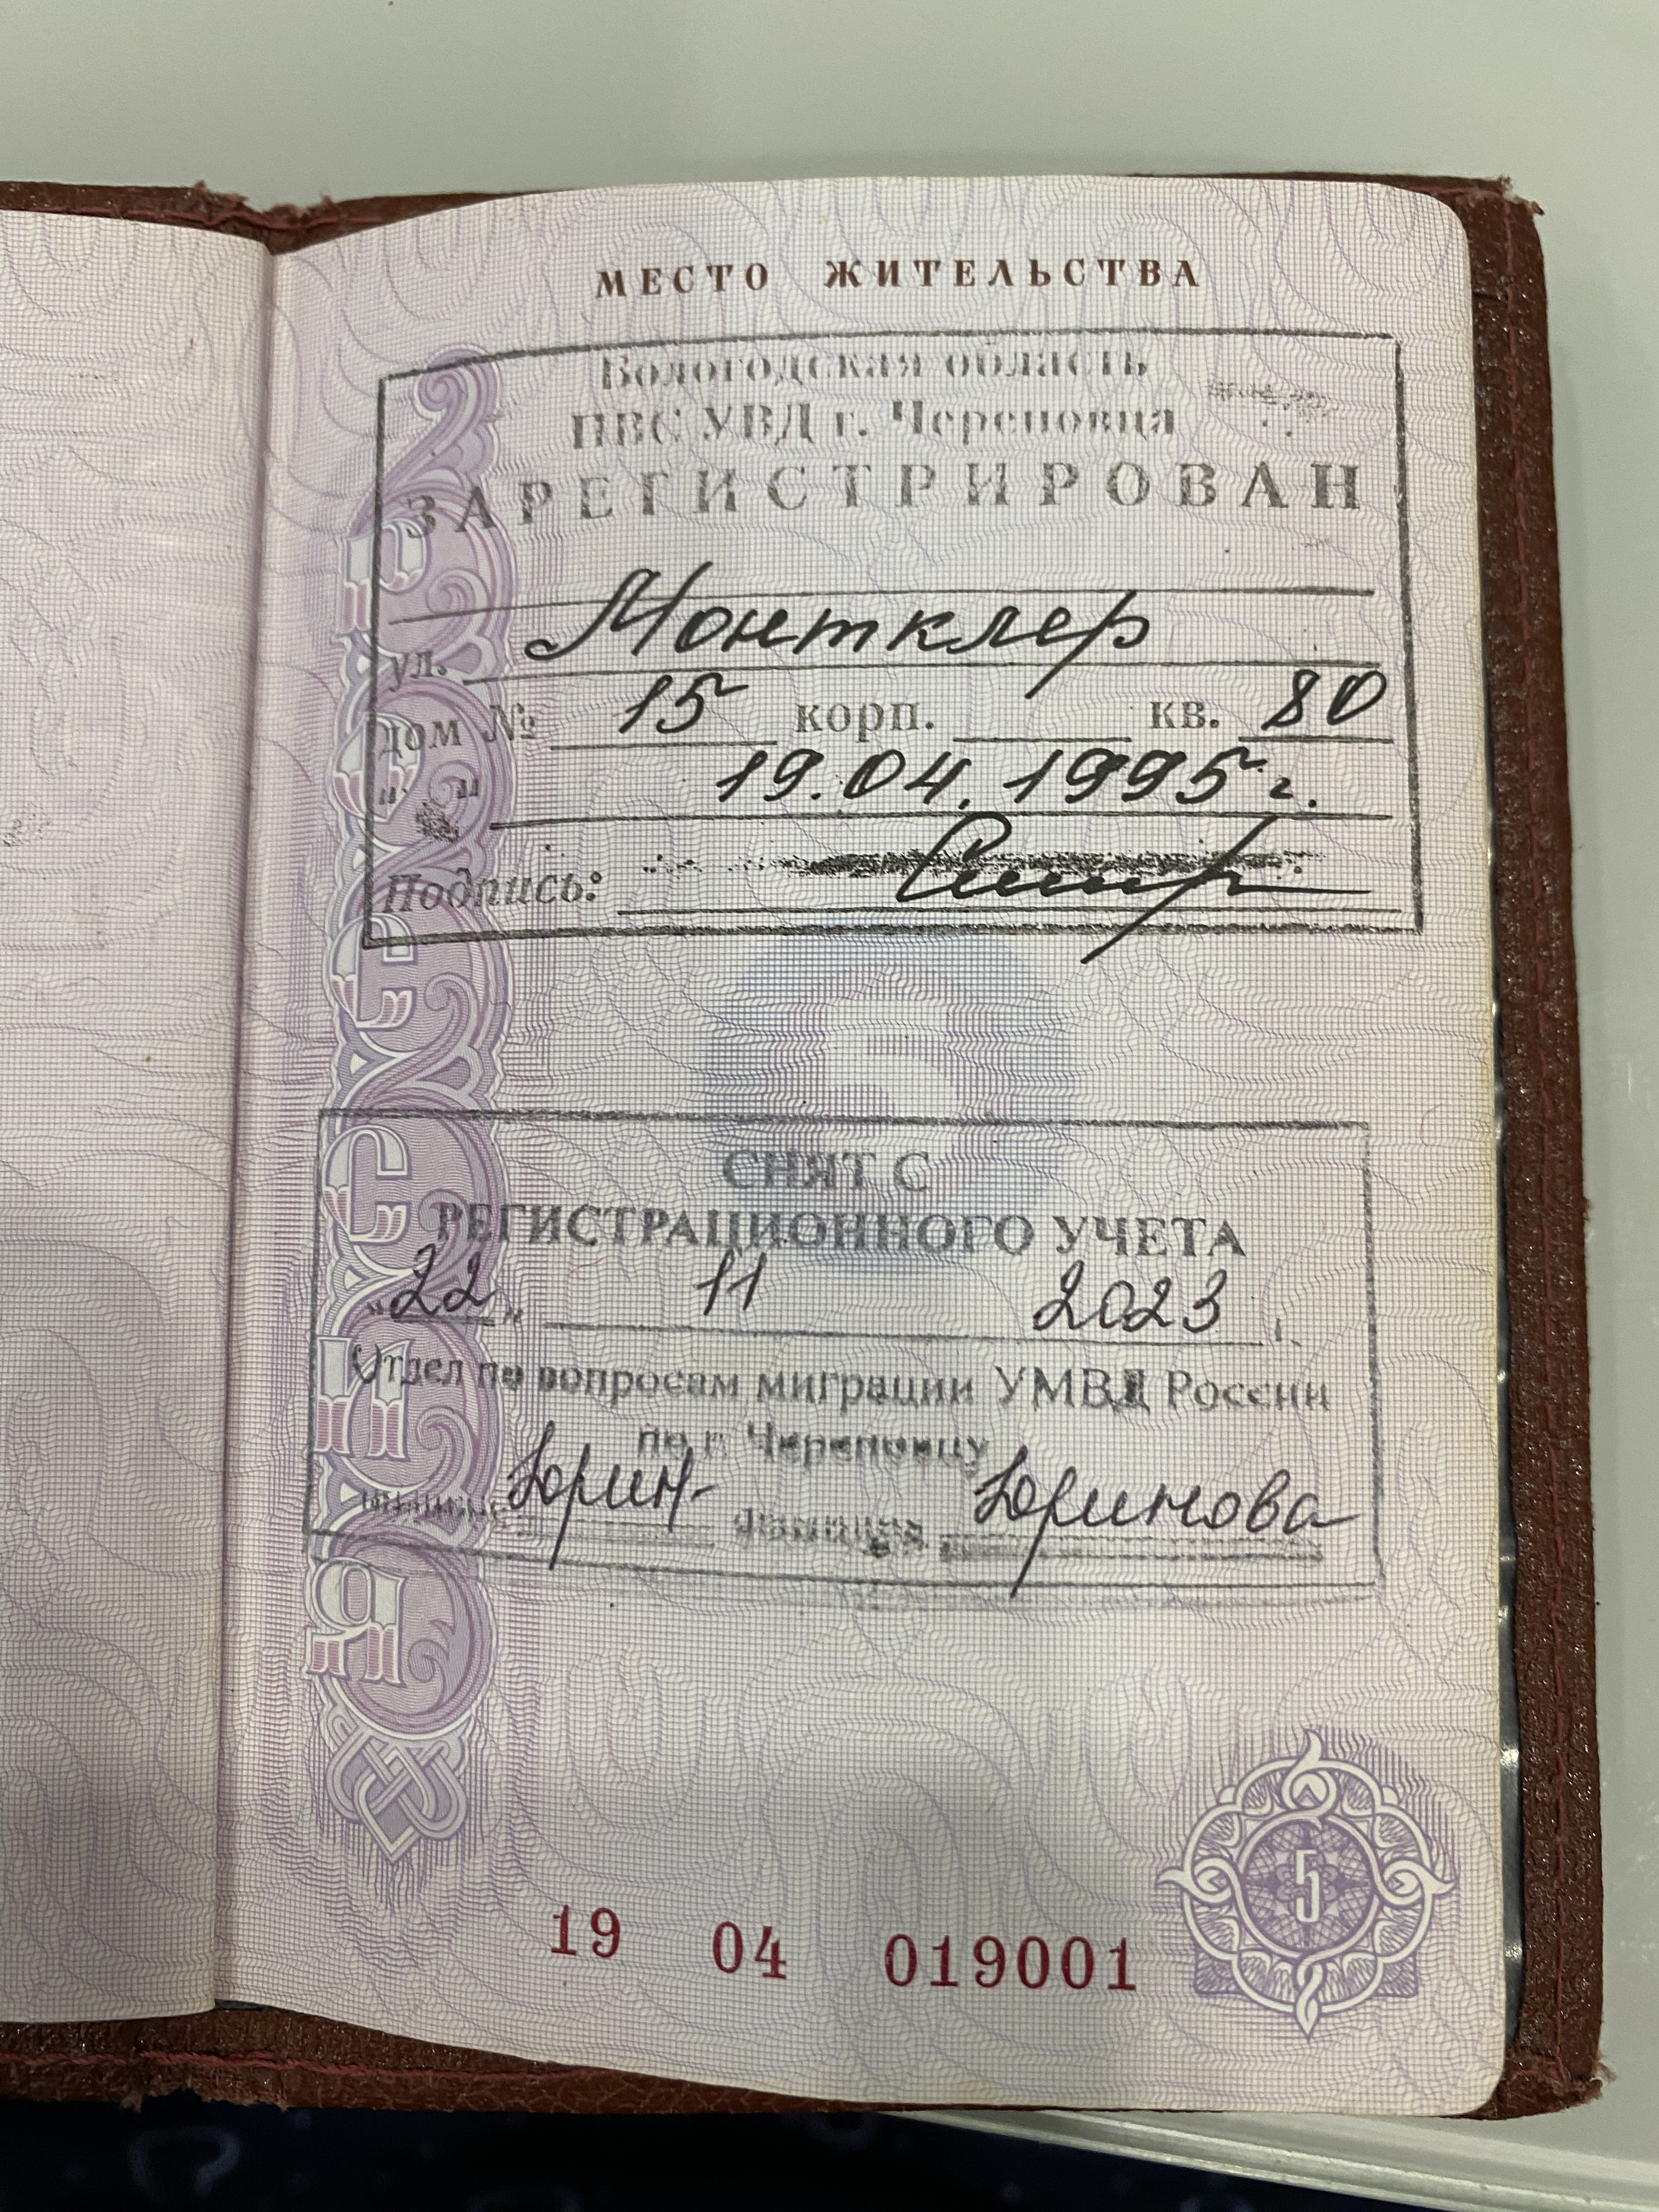 МЕСТО ЖИТЕЛЬСТВА
Вологодская область
ПВС УВД г. Череповца
ЗАРЕГИСТРИРОВАН
ул. Монтклер
дом № 15 корп. кв. 80
" " 19.04.1995 г.
Подпись:
СНЯТ С
РЕГИСТРАЦИОННОГО УЧЕТА
"22" 11 2023 г.
Отдел по вопросам миграции УМВД России
по г. Череповцу
Юрин- фамилия Юринова
РОССИЯ
19 04 019001
5